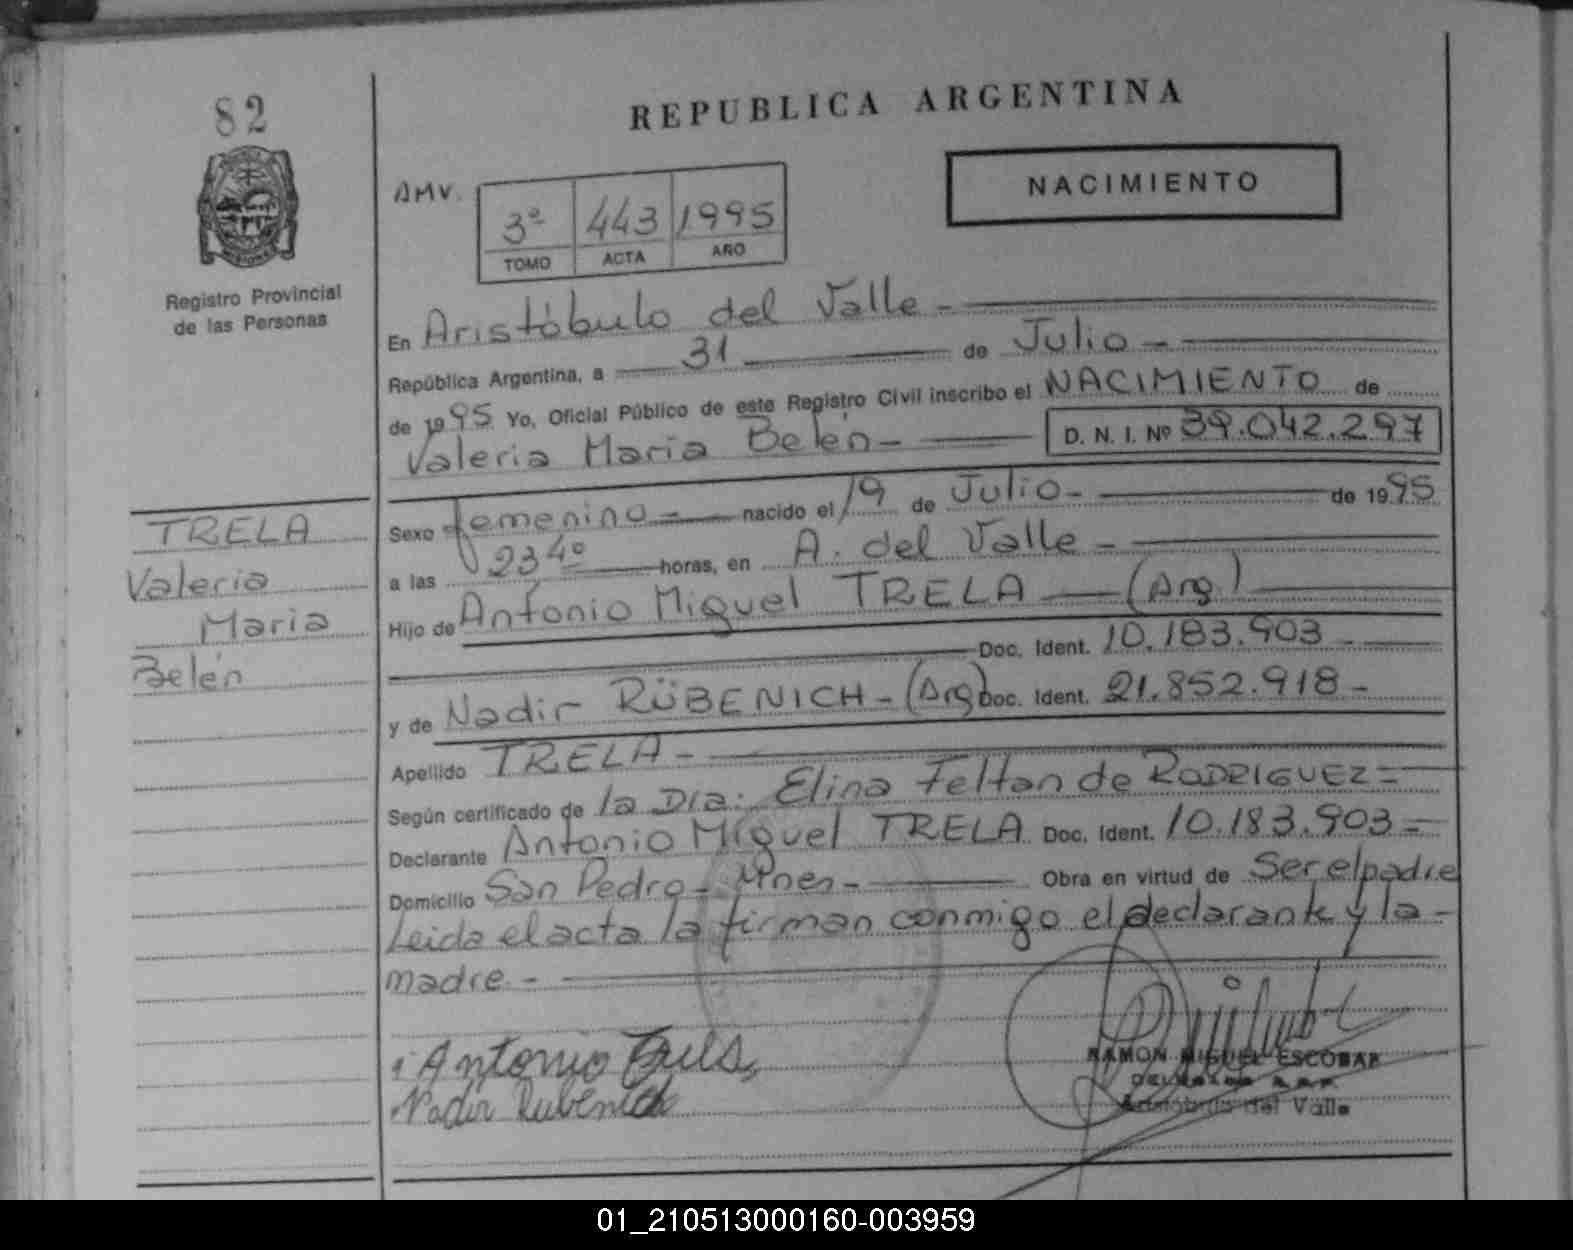 82
REPUBLICA ARGENTINA
NACIMIENTO
AMV.
3º 443 1995
TOMO ACTA AÑO
Registro Provincial
de las Personas
En Aristóbulo del Valle -
República Argentina, a 31 de Julio -
de 1995 Yo, Oficial Público de este Registro Civil inscribo el NACIMIENTO de
Valeria Maria Belén - D. N. I. Nº 39.042.297
TRELA
Valeria
Maria
Belén
Sexo femenino - nacido el 19 de Julio - de 1995
a las 23 40 horas, en A. del Valle -
Hijo de Antonio Miguel TRELA (Arg)
Doc. Ident. 10.183.903 -
y de Nadir RÜBENICH - (Arg) Doc. Ident. 21.852.918 -
Apellido TRELA -
Según certificado de la Dra. Elina Feltan de RODRIGUEZ =
Declarante Antonio Miguel TRELA Doc. Ident. 10.183.903 =
Domicilio San Pedro - Mnes - Obra en virtud de Ser el padre
Leida el acta la firman conmigo el declarante y la -
madre. -
Antonio
Nadir Rubenich
RAMON MIGUEL ESCOBAR
Aristóbulo del Valle
01_210513000160-003959